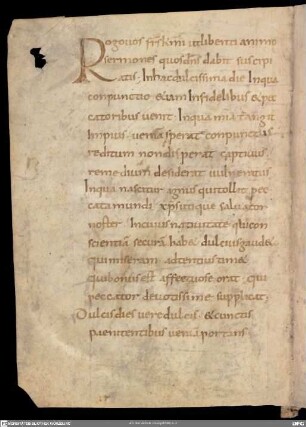 Rogo vos fr̄s km̄i ut libenti animo
sermones quos dn̄s dabit suscipi
atis. In hac dulcissima die In qua
conpunctio etiam Infidelibus et pec
catoribus venit In qua
Impius veniā sperat conpunctus
reditum non disperat captivus,
remedium desiderat vulneratus
In qua nascitur agnus qui tollit pec
cata mundi xp̄s itaque salvator
noster In cuius nativitate qui con
scientiā securā habet dulcius gaudeat
qui miseram adtentius timeat
qui bonus est affectuose orat, qui
peccator devotissime supplicat;
Dulcis dies vere dulcis et cunctis
paenitentibus veniā portans